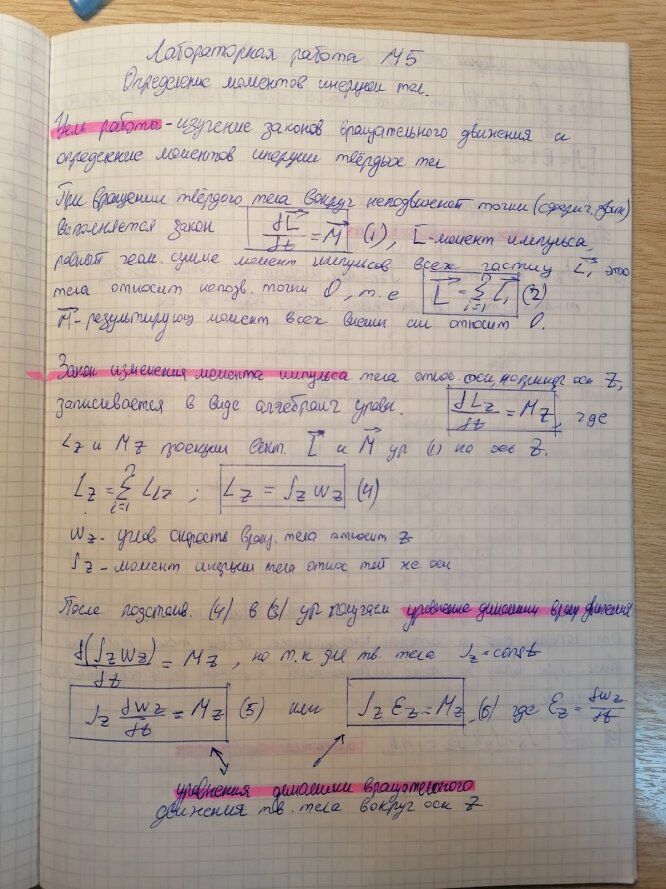 Лабораторная работа М5
Определение моментов инерции тел.
Цель работы - изучение законов вращательного движения и
определение моментов инерции твёрдых тел
При вращении твёрдого тела вокруг неподвижной точки (сферич. движ)
выполняется закон dL/dt = M (1), L - момент импульса,
равный геом. сумме момент импульсов всех частиц Li это
тела относит неподв. точки O, т.е L = Σ Li (2)
M - результирующ момент всех внешн сил относит O.
Закон изменения момента импульса тела относ. оси, например оси Z,
записывается в виде алгебраич уравн. dLz/dt = Mz, где
Lz и Mz проекции вект. L и M ур (1) на ось Z.
Lz = Σ Liz ; Lz = Jz wz (4)
wz - углов скорость вращ. тела относит z
Jz - момент инерции тела относ той же оси
После подстанов. (4) в (3) ур получаем уравнение динамики вращ движения
d(Jz wz)/dt = Mz, но т.к для тв. тела Jz = const
Jz dwz/dt = Mz (5) или Jz Ez = Mz (6) где Ez = dwz/dt
уравнения динамики вращательного
движения тв. тела вокруг оси z